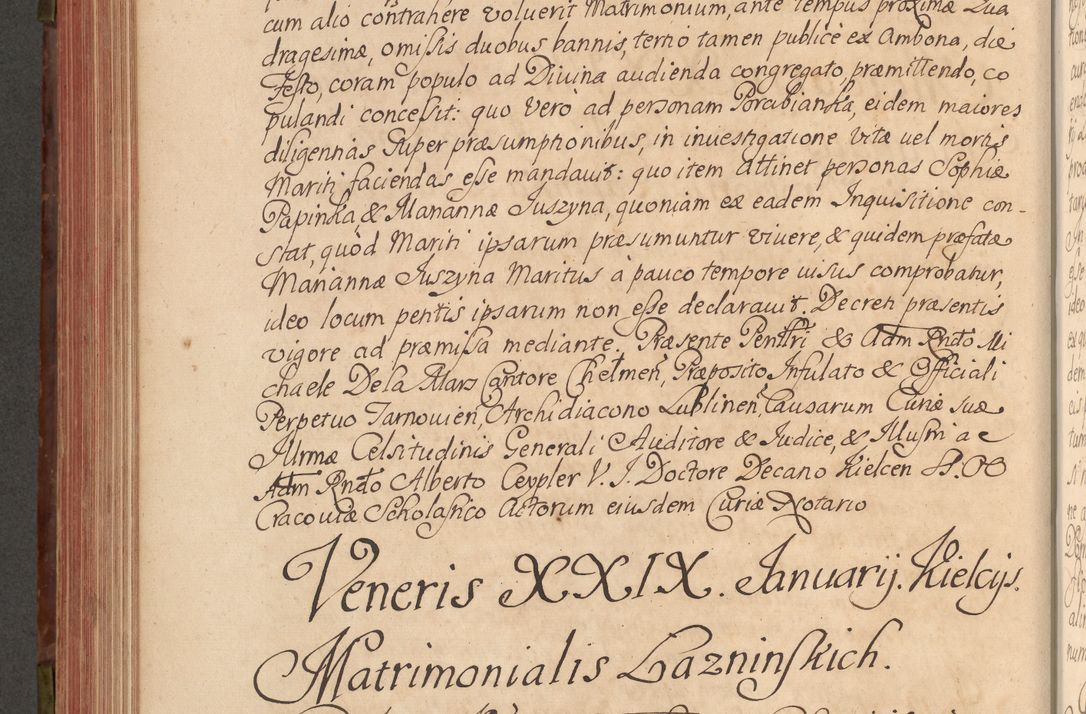 cum alio contrahere voluerit Matrimonium, ante tempus proximæ Qua
dragesimæ, omissis duobus bannis, terno tamen publice ex Ambona, die
Festo, coram populo ad Divina audienda congregato, præmittendo, co
pulandi concessit: quo vero ad personam Porabianska, eidem maiores
diligentias super præsumptionibus, in investigatione vitæ vel mortis
Mariti faciendas esse mandavit: quo item attinet personas Sophiæ
Papinska & Mariannæ Juszyna, quoniam ex eadem Inquisitione con-
stat, quod Mariti ipsarum præsumuntur vivere, & quidem præfatæ
Mariannæ Juszyna Maritus a pauco tempore visus comprobatur,
ideo locum petitis ipsarum non esse declaravit. Decreti præsentis
vigore ad præmissa mediante. Præsente Perillri & Adm Rndo Mi
chaele De la Mars Cantore Chelmen, Præposito Infulato & Officiali
Perpetuo Tarnovien, Archidiacono Lublinen, Causarum Curiæ suæ
Illrmæ Celsitudinis Generali Auditore & Judice, & Illustri ac
Adm Rndo Alberto Ceypler V. J. Doctore Decano Kielcen SS. OO
Cracoviæ Scholastico Actorum eiusdem Curiæ Notario
Veneris XXIX. Januarij. Kielcijs.
Matrimonialis Lazninskich.